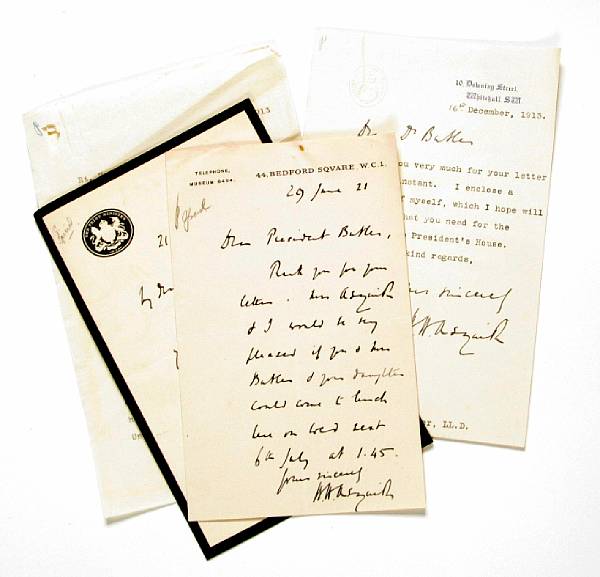 TELEPHONE,
MUSEUM 8434.
44, BEDFORD SQVARE, W.C.1.
29 June 21
Dear President Butler,
Thank you for your
letter. Mrs Asquith
& I would be very
pleased if you & Mrs
Butler & your daughter
could come to lunch
here on Wed next
6th July at 1.45.
Yours sincerely
H H Asquith
10, Downing Street,
Whitehall. S.W.
16th December, 1913.
Dr Butler
ou very much for your letter
nstant. I enclose a
f myself, which I hope will
hat you need for the
President's House.
kind regards,
sincerely
H H Asquith
r, LL.D.
21